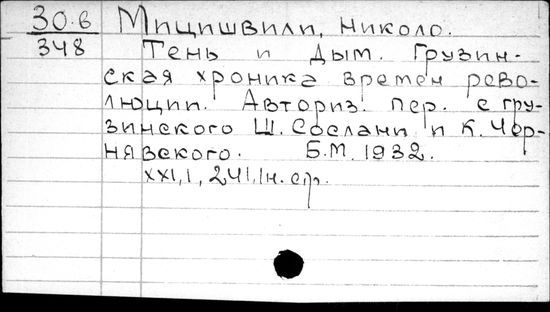 30.в Мицишвили, Николо.
348 Тень и дым. Грузин-
ская хроника времен рево-
люции. Авториз. пер. с гру-
зинского Ш. Сослани и К. Чер-
нявского. Б.М. 1932.
XXI,1,241,1н. стр.